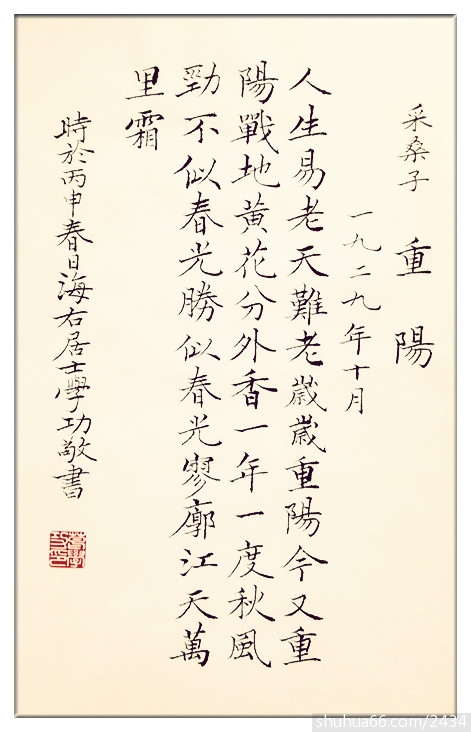 采桑子 重陽
一九二九年十月
人生易老天難老歲歲重陽今又重
陽戰地黃花分外香一年一度秋風
勁不似春光勝似春光寥廓江天萬
里霜
時於丙申春日海右居士學功敬書
shuhua66.com/2434